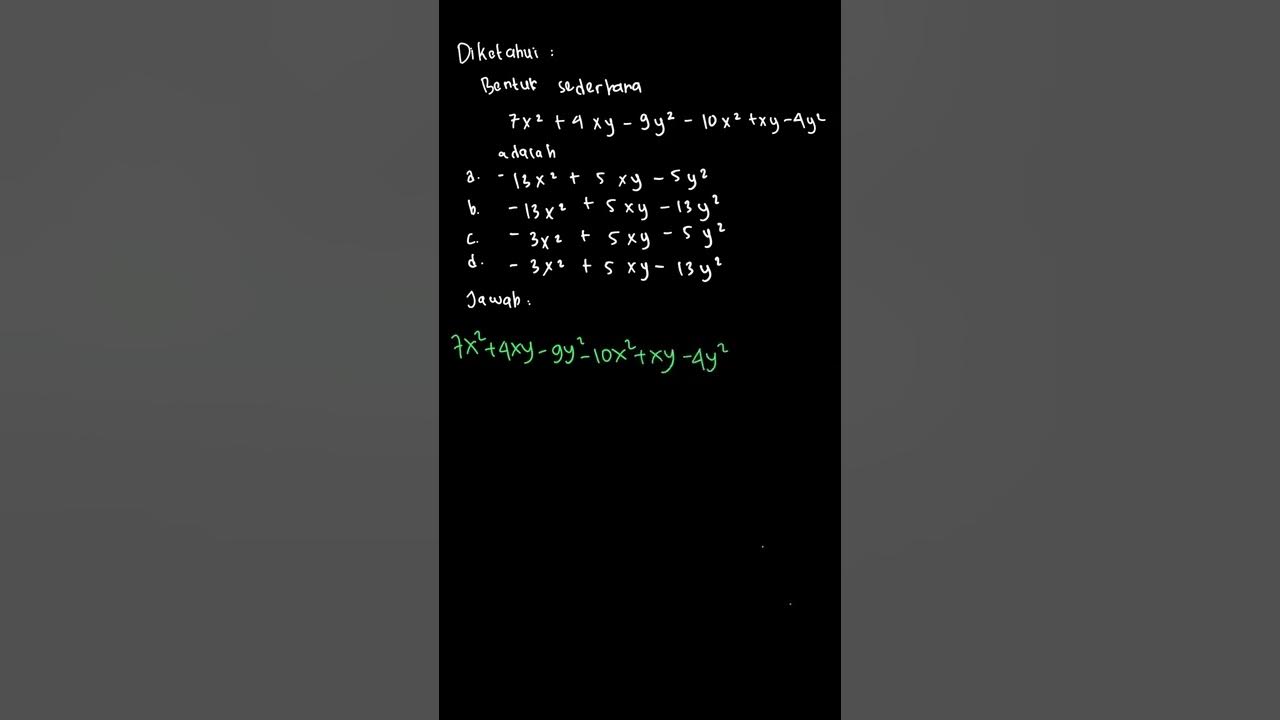 Diketahui :
Bentuk sederhana
7x² + 4xy - 9y² - 10x² + xy - 4y²
adalah
a. - 13x² + 5xy - 5y²
b. - 13x² + 5xy - 13y²
c. - 3x² + 5xy - 5y²
d. - 3x² + 5xy - 13y²
Jawab :
7x² + 4xy - 9y² - 10x² + xy - 4y²